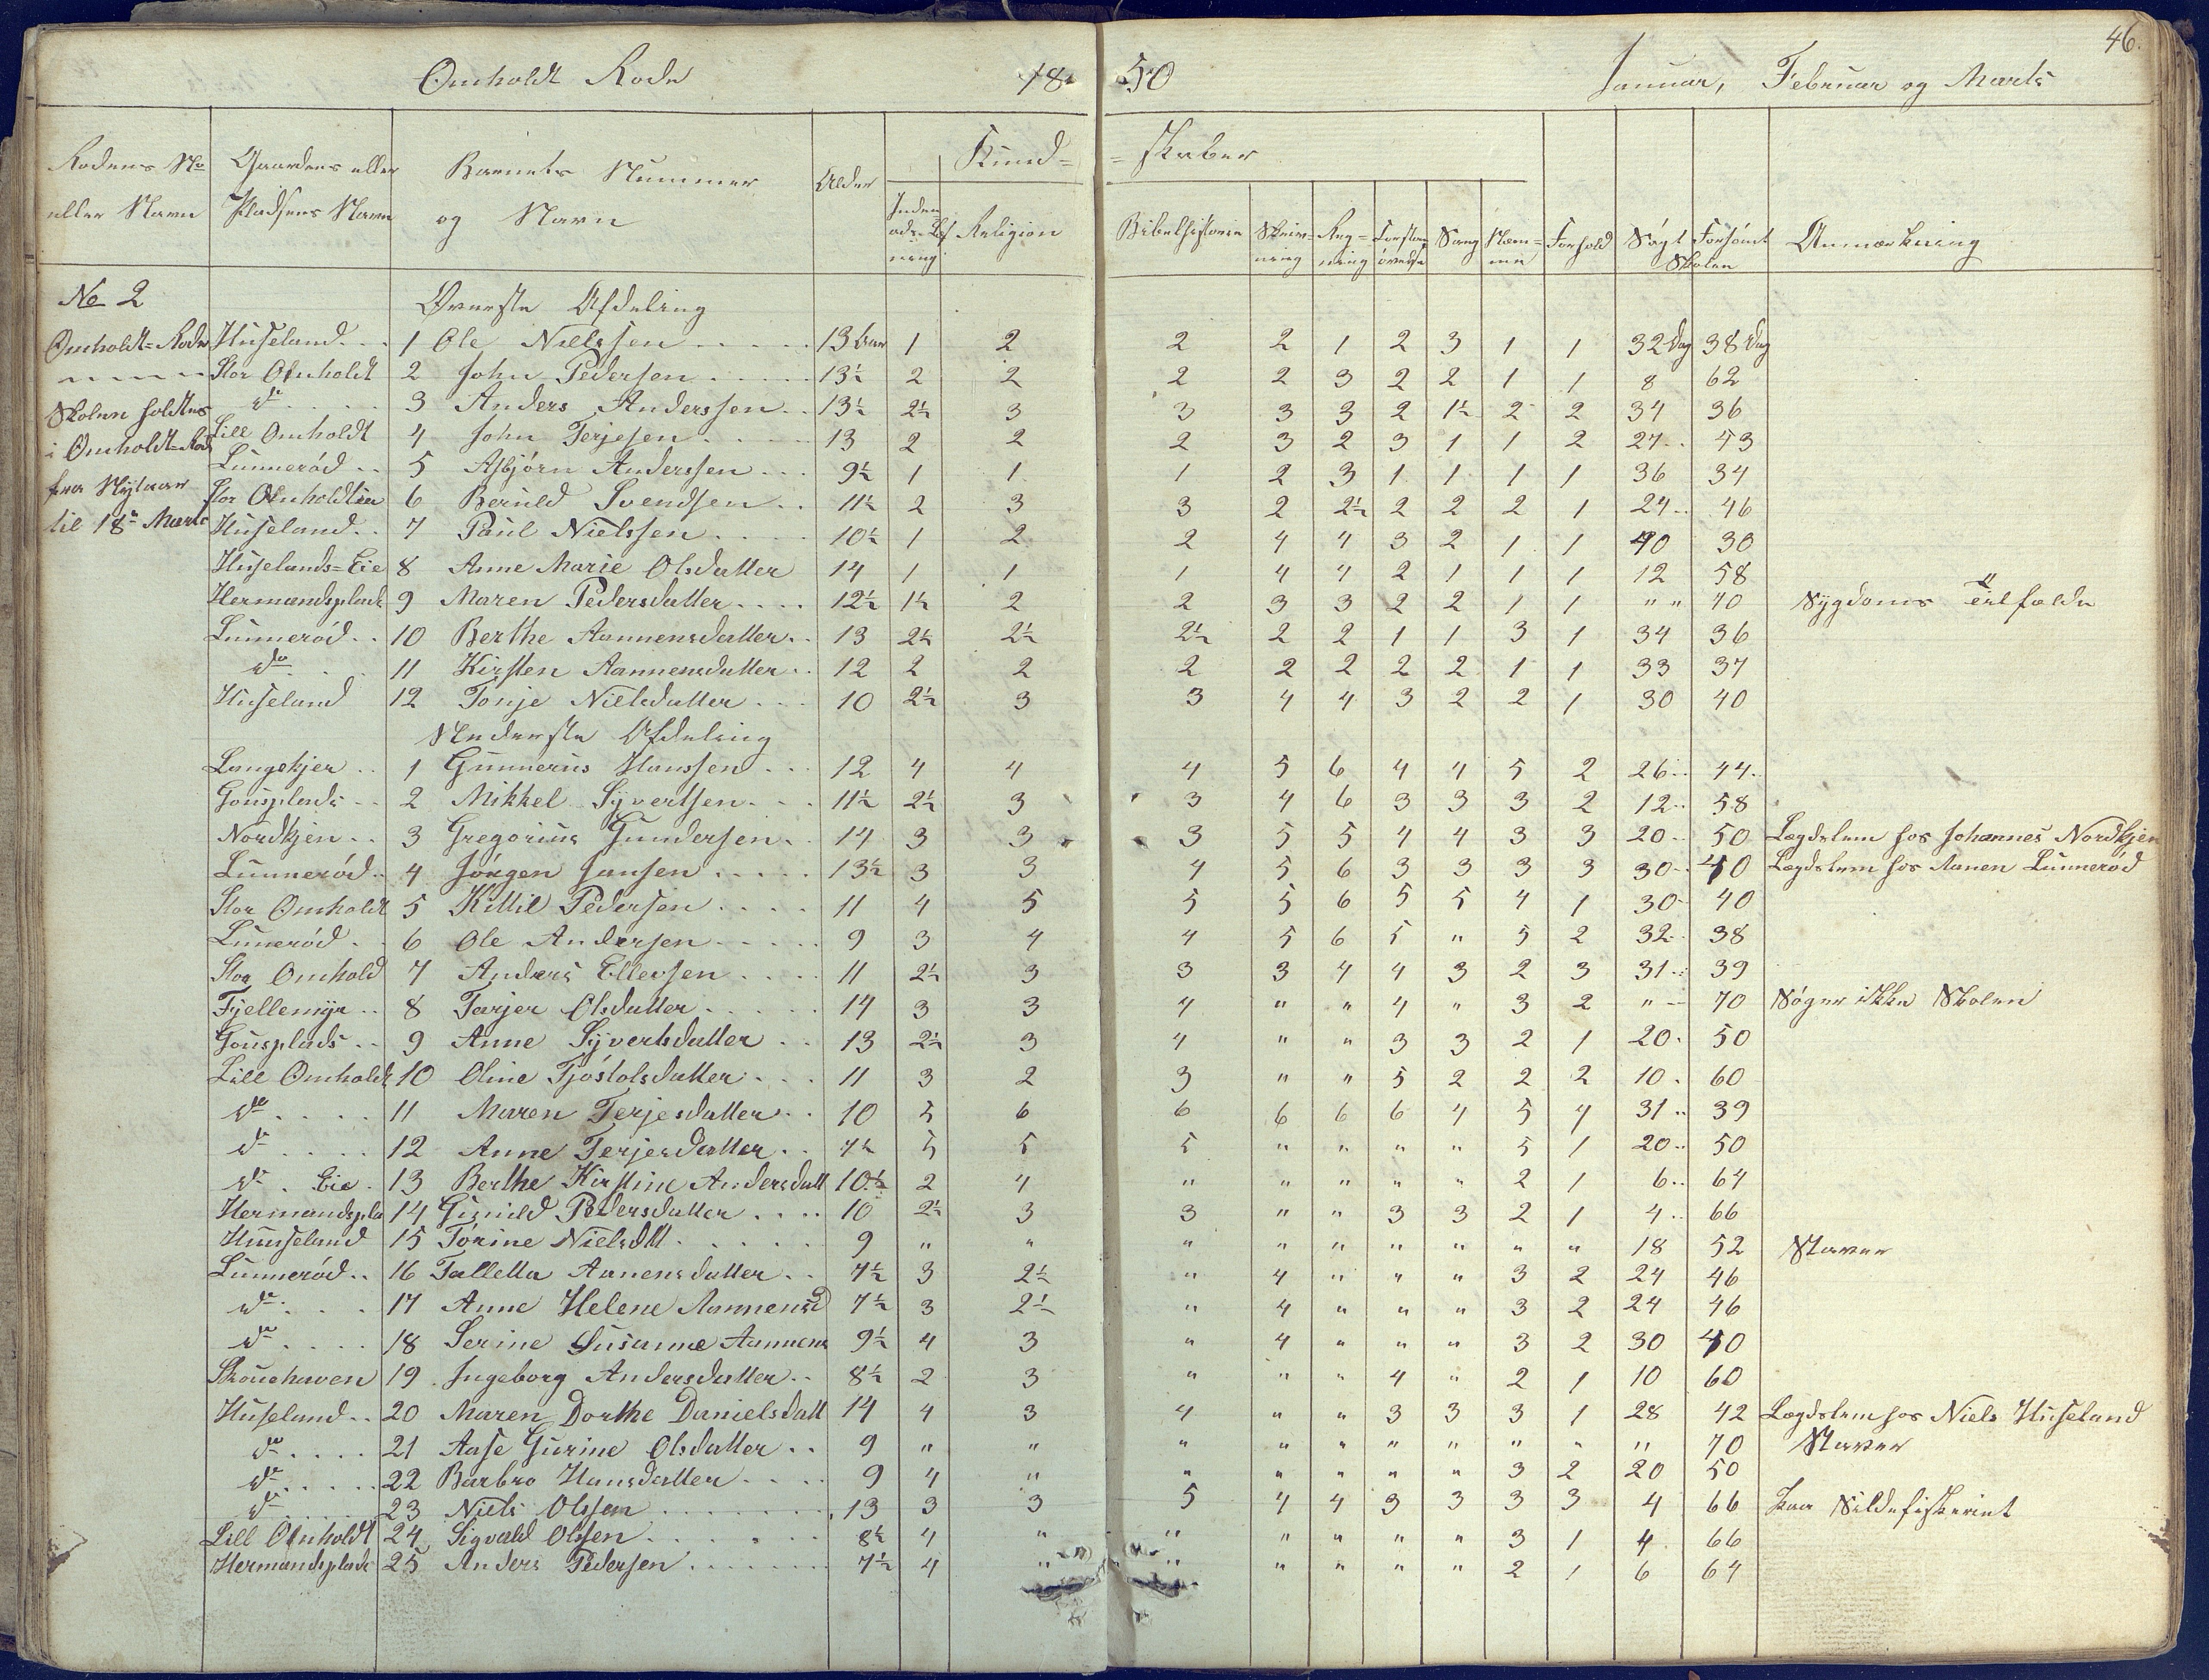 46.
Omholdt Rode 1850 Januar, Februar og Marts
Rodens No eller Navn | Gaardens eller Pladsens Navn | Barnets Nummer og Navn | Alder | Kund= =skaber | Forhold | Søgt Forsømt Skolen | Anmærkning
Religion | Bibelhistorie | Skriv=ning | Reg=ning | Sang | Nem=me
No 2 Øverste Afdeling
Omholdt=Rode Huseland 1 Ole Nielssen 13 aar 1 2 2 2 1 2 3 1 1 32 Dag 38 Dag
" " " " Stor Omholdt 2 John Pedersen 13½ 2 2 2 2 3 2 2 1 1 8 62
Skolen holdtes do 3 Anders Anderssen 13½ 2½ 3 3 3 3 2 1½ 2 2 34 36
i Omholdt=Rode Lill Omholdt 4 John Terjesen 13 2 2 2 3 2 3 1 1 2 27 43
Lunnerød 5 Asbjørn Anderssen 9½ 1 1 1 2 3 1 1 1 1 36 34
fra Nytaar Stor Omholdtlia 6 Beruld Svendsen 11½ 2 3 3 2 2½ 2 2 2 1 24 46
til 18de Marts Huseland 7 Paul Nielssen 10½ 1 2 2 4 4 3 2 1 1 40 30
Huselands=Eie 8 Anne Marie Olsdatter 14 1 1 1 4 4 2 1 1 1 12 58
Hermandsplads 9 Maren Pedersdatter 12½ 1½ 2 2 3 3 2 2 1 1 " " 70 Sygdoms Tilfælde
Lunnerød 10 Berthe Aannensdatter 13 2½ 2½ 2½ 2 2 1 1 3 1 34 36
do 11 Kirsten Aannensdatter 12 2 2 2 2 2 2 2 1 1 33 37
Huseland 12 Tonje Nielsdatter 10 2½ 3 3 4 4 3 2 2 1 30 40
Nederste Afdeling
Langekjer 1 Gunnerus Hanssen 12 4 4 4 5 6 4 4 5 2 26 44
Gousplads 2 Mikkel Syvertsen 11½ 2½ 3 3 4 6 3 3 3 2 12 58
Nordkjen 3 Gregorius Gundersen 14 3 3 3 5 5 4 4 3 3 20 50 Lægdslem hos Johannes Nordkjen
Lunnerød 4 Jørgen Jansen 13½ 3 3 4 5 6 3 3 3 3 30 40 Lægdslem hos Aanen Lunnerød
Stor Omholdt 5 Kittil Pedersen 11 4 5 5 5 6 5 5 4 1 30 40
Lunerød 6 Ole Andersen 9 3 4 4 5 6 5 " 5 2 32 38
Stor Omhold 7 Anders Ellevsen 11 2½ 3 3 3 4 4 3 2 3 31 39
Fjellemyr 8 Tarjer Olsdatter 14 3 3 4 " " 4 " 3 2 " 70 Søger ikke Skolen
Gousplads 9 Anne Syvertsdatter 13 2½ 3 4 " " 3 3 2 1 20 50
Lill Omholdt 10 Oline Tjøstolsdatter 11 3 2 3 " " 5 2 2 2 10 60
do 11 Maren Terjesdatter 10 5 6 6 6 6 6 4 5 4 31 39
do 12 Anne Terjesdatter 7½ 5 5 5 " " " " 5 1 20 50
do Eie 13 Berthe Kirstine Andersdatt 10½ 2 4 " " " " " 2 1 6 64
Hermandspla 14 Gunild Pedersdatter 10 2½ 3 3 " " 3 3 2 1 4 66
Huuseland 15 Tørine Nielsdtt 9 " " " " " " " " " 18 52 Staver
Lunnerød 16 Talletta Aanensdatter 7½ 3 2½ " 4 " " " 3 2 24 46
do 17 Anne Helene Aannensd 7½ 3 2½ " 4 " " " 3 2 24 46
do 18 Serine Susanne Aannens 9½ 4 3 " 4 " " " 3 2 30 40
Skouehaven 19 Ingeborg Andersdatter 8½ 2 3 " " " 4 " 2 1 10 60
Huseland 20 Maren Dorthe Danielsdatt 14 4 3 4 " " 3 3 3 1 28 42 Lægdslem hos Niels Huseland
do 21 Aase Gurine Olsdatter 9 " " " " " " " " " " 70 Staver
do 22 Barbro Hansdatter 9 4 " " " " " " 3 2 20 50
do 23 Niels Olssen 13 3 3 5 4 4 3 3 3 3 4 66 paa Sildefiskeriet
Lill Omholdt 24 Sigvald Olssen 8½ 4 " " " " " " 3 1 4 66
Hermandsplads 25 Anders Pedersen 7½ 4 " " " " " " 2 1 6 64